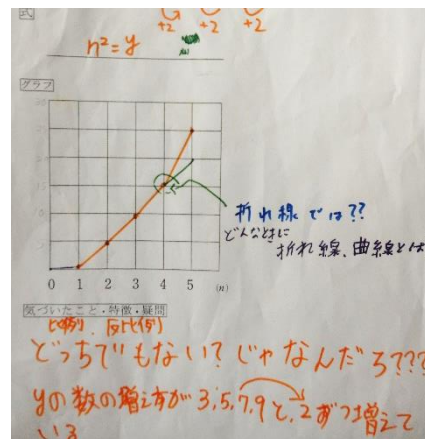 式
+2 +2 +2
n²=y
グラフ
15
0 1 2 3 4 5 (n)
折れ線では??
どんなときに
折れ線、曲線とは
気づいたこと・特徴・疑問
比例、反比例
どっちでもない?じゃなんだろ???
yの数の増え方が3,5,7,9と、2ずつ増えて
いる